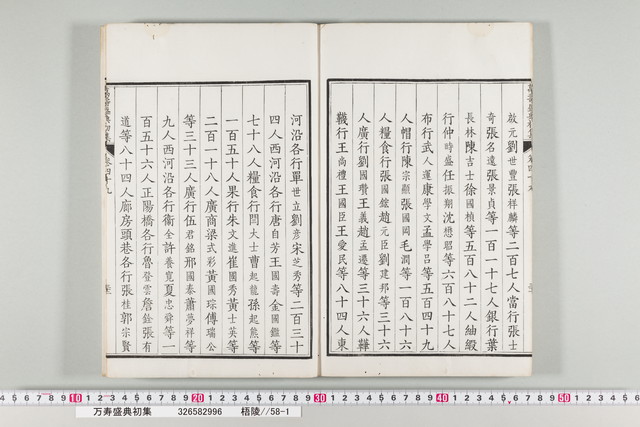 啟元劉世豐張祥麟等二百七人當行張士
奇張名遠張景貞等一百一十七人銀行葉
長林陳吉士徐國楨等五百八十二人紬緞
行仲時盛任振期沈懋昭等六百八十七人
布行武人運康學文孟學呂等五百四十九
人帽行陳宗顯張國同毛潤等一百八十六
人糧食行張國鋐趙元臣劉建邦等三十六
人廣行劉國瓚王義趙孟遴等三十六人鞾
韈行王尚禮王國臣王愛民等八十四人東
河沿各行單世立劉彥宋芝秀等二百三十
四人西河沿各行唐自芳王國壽金國鑑等
七十八人糧食行閆大士曹起龍孫起熊等
一百五十人果行朱文進崔國秀黃士英等
二百一十八人廣商梁式彩黃國琮傅瑞公
等三十三人廣行伍君銘邢國泰蕭夢祥等
九人西河沿各行衞全許養寬夏忠舜等一
百五十六人正陽橋各行魯登雲詹銓張有
道等八十四人廊房頭巷各行張桂郭宗賢
卷四十九
10 20 30 40 50
万寿盛典初集 326582996 梧陵//58-1